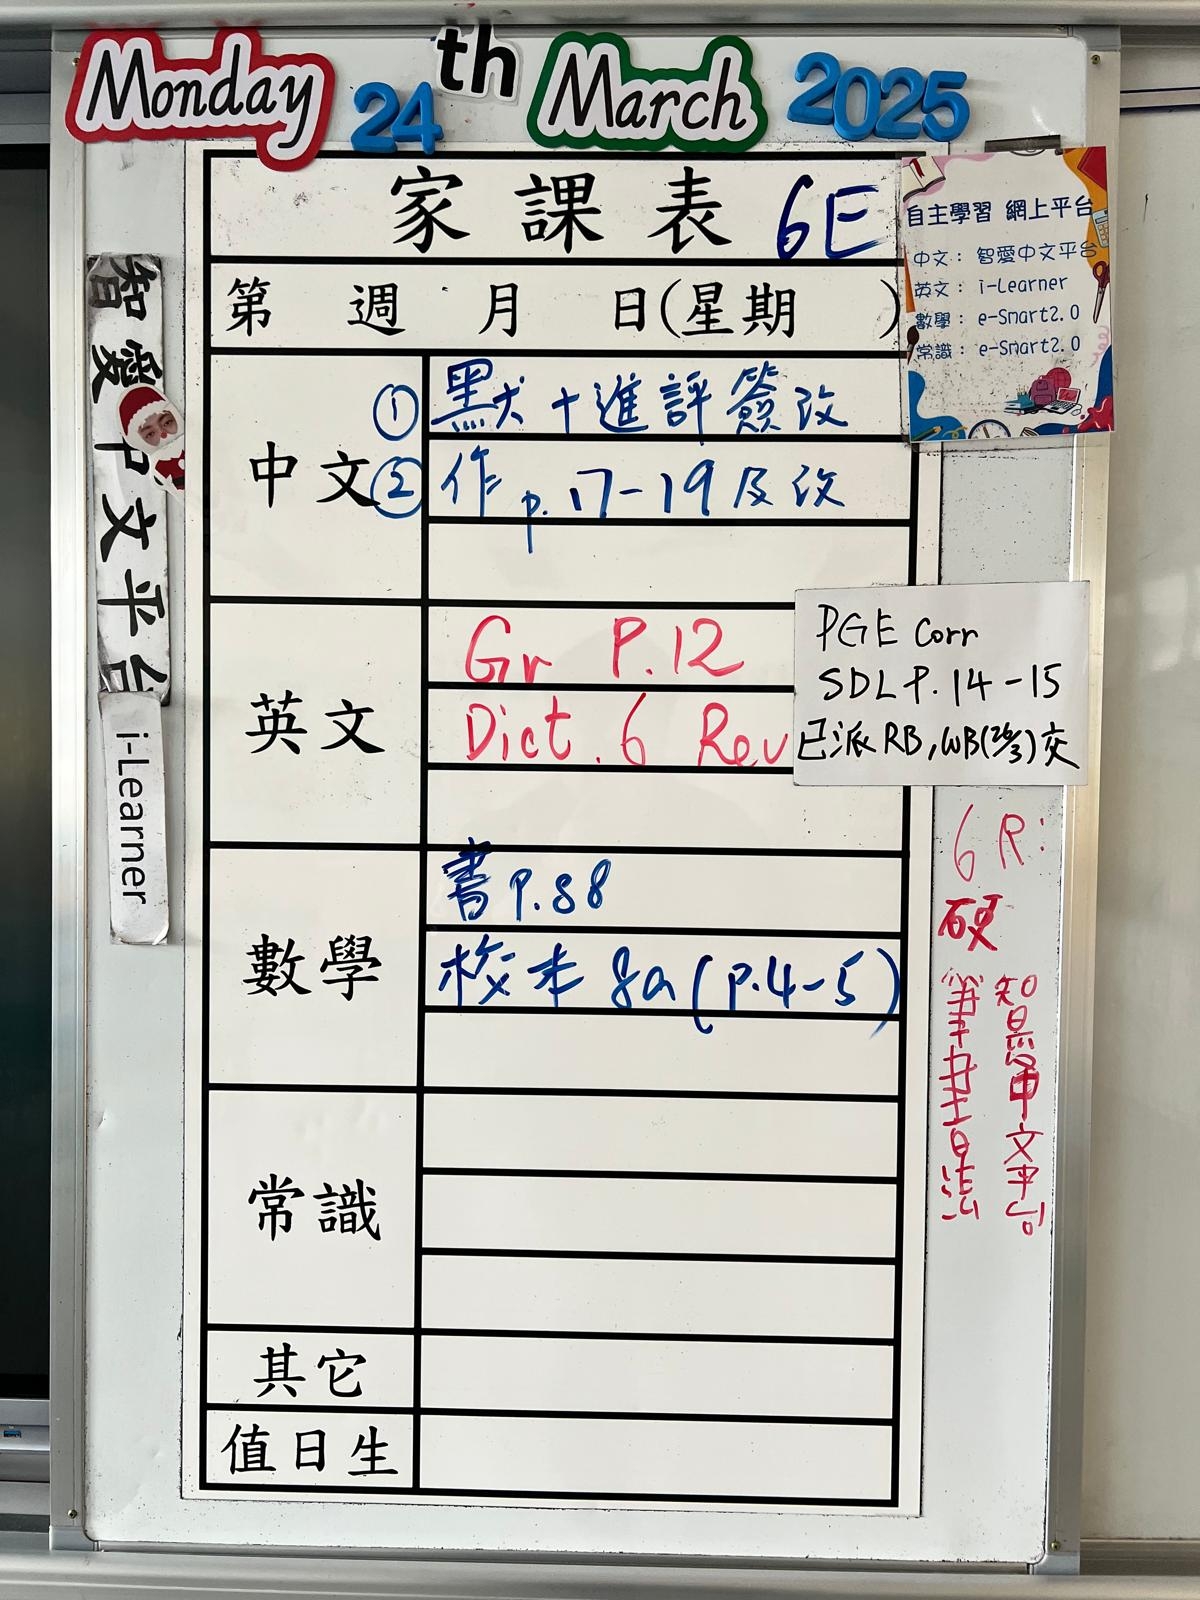 Monday 24th March 2025
家課表 6E
第 週 月 日(星期 )
自主學習 網上平台
中文： 智愛中文平台
英文： i-Learner
數學： e-Smart2.0
常識： e-Smart2.0
智愛中文平台
i-Learner
中文
① 默+進評簽改
② 作p.17-19及改
英文
Gr P.12
Dict. 6 Rev
PGE Corr
SDL P.14-15
已派RB, WB(26/3)交
數學
書P.88
校本8a(p.4-5)
6R:
硬筆書法
智愛中文平台
常識
其它
值日生